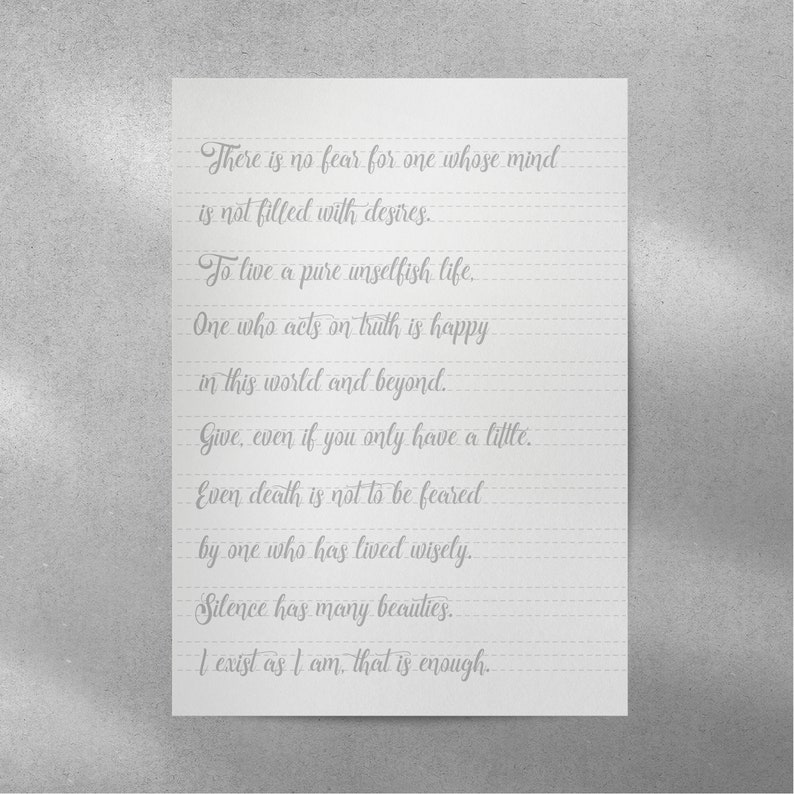 There is no fear for one whose mind
is not filled with desires.
To live a pure unselfish life,
One who acts on truth is happy
in this world and beyond.
Give, even if you only have a little.
Even death is not to be feared
by one who has lived wisely.
Silence has many beauties.
I exist as I am, that is enough.